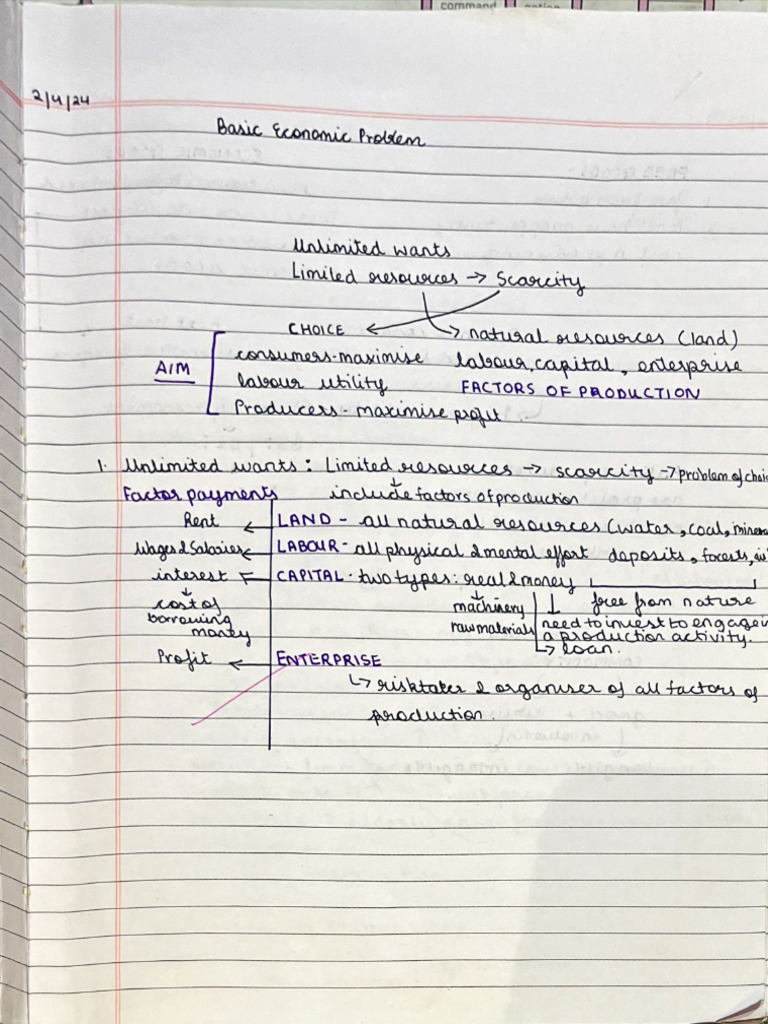 command option
2/4/24
Basic Economic Problem
Unlimited wants
Limited resources → Scarcity
CHOICE
natural resources (land)
AIM
consumers - maximise
labour, capital, enterprise
labour utility
FACTORS OF PRODUCTION
Producers - maximise profit.
1. Unlimited wants : Limited resources → scarcity → problem of choi
Factor payments
include factors of production
Rent ← LAND - all natural resources (water, coal, minera
Wages & Salaries ← LABOUR - all physical & mental effort deposits, forests,
interest ← CAPITAL - two types: real & money
cost of borrowing money
machinery
raw materials
free from nature
need to invest to engage in
a production activity.
↳ loan.
Profit ← ENTERPRISE
↳ risktaker & organiser of all factors of
production.